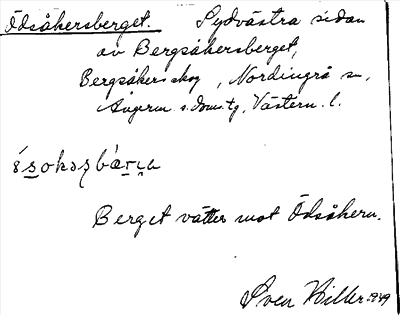 Ödsåkersberget. Sydvästra sidan
av Bergsåkersberget,
Bergsåkers skog, Nordingrå sn,
Ångerm. s. doms.tg, Västern. l.
Berget vätter mot Ödsåkern.
Sven Hiller 1949